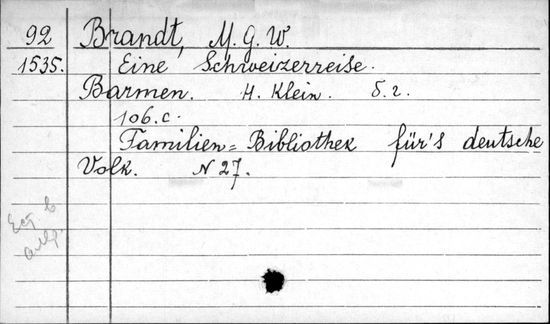 92 Brandt, M. G. W.
1535. Eine Schweizerreise.
Barmen. H. Klein. б. г.
106. с.
Familien=Bibliothek für's deutsche
Volk. N 27.
Ест в
алф.